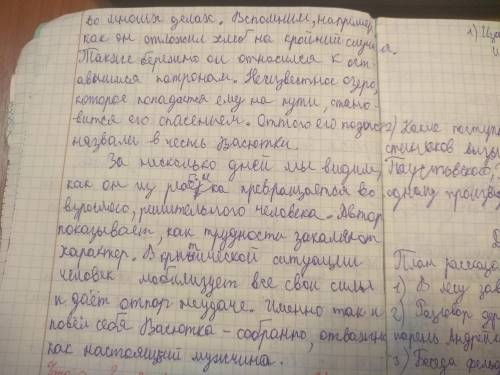 во многих делах. Вспомним, например,
как он отложил хлеб на крайний случая.
Также бережно он относился к ост
авшимся патронам. Неизвестное озеро,
которое попадается ему на пути, стано-
вится его спасеньем. Оттого его позже
назвали в честь Васютки.
За несколько дней мы видим,
как он из ребёнка превращается во
взрослого, решительного человека. Автор
показывает, как трудности закаляют
характер. В критической ситуации
человек мобилизует все свои силы
и даёт отпор неудаче. Именно так и
повёл себя Васютка - собранно, отважно
как настоящий мужчина.
1)
2) Какие поступ
Паустовский,
одному произв
План рассказа
1) В лесу зав
2) Разговор
парень Андрей
3) Беседа